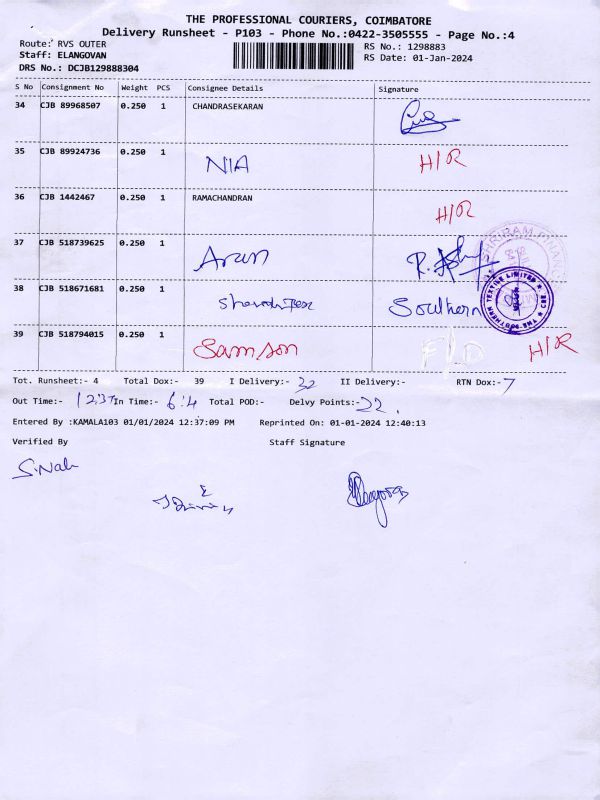 THE PROFESSIONAL COURIERS, COIMBATORE
Delivery Runsheet - P103 - Phone No.:0422-3505555 - Page No.:4
Route: RVS OUTER
RS No.: 1298883
Staff: ELANGOVAN
RS Date: 01-Jan-2024
DRS No.: DCJB129888304
S No Consignment No Weight PCS Consignee Details Signature
34 CJB 89968507 0.250 1 CHANDRASEKARAN
35 CJB 89924736 0.250 1 NIA H/R
36 CJB 1442467 0.250 1 RAMACHANDRAN H/R
37 CJB 518739625 0.250 1 Arun
38 CJB 518671681 0.250 1 Southern
39 CJB 518794015 0.250 1 Samson F/D H/R
Tot. Runsheet:- 4 Total Dox:- 39 I Delivery:- 32 II Delivery:- RTN Dox:- 7
Out Time:- 12.37 In Time:- 6:4 Total POD:- Delvy Points:- 22.
Entered By :KAMALA103 01/01/2024 12:37:09 PM Reprinted On: 01-01-2024 12:40:13
Verified By Staff Signature